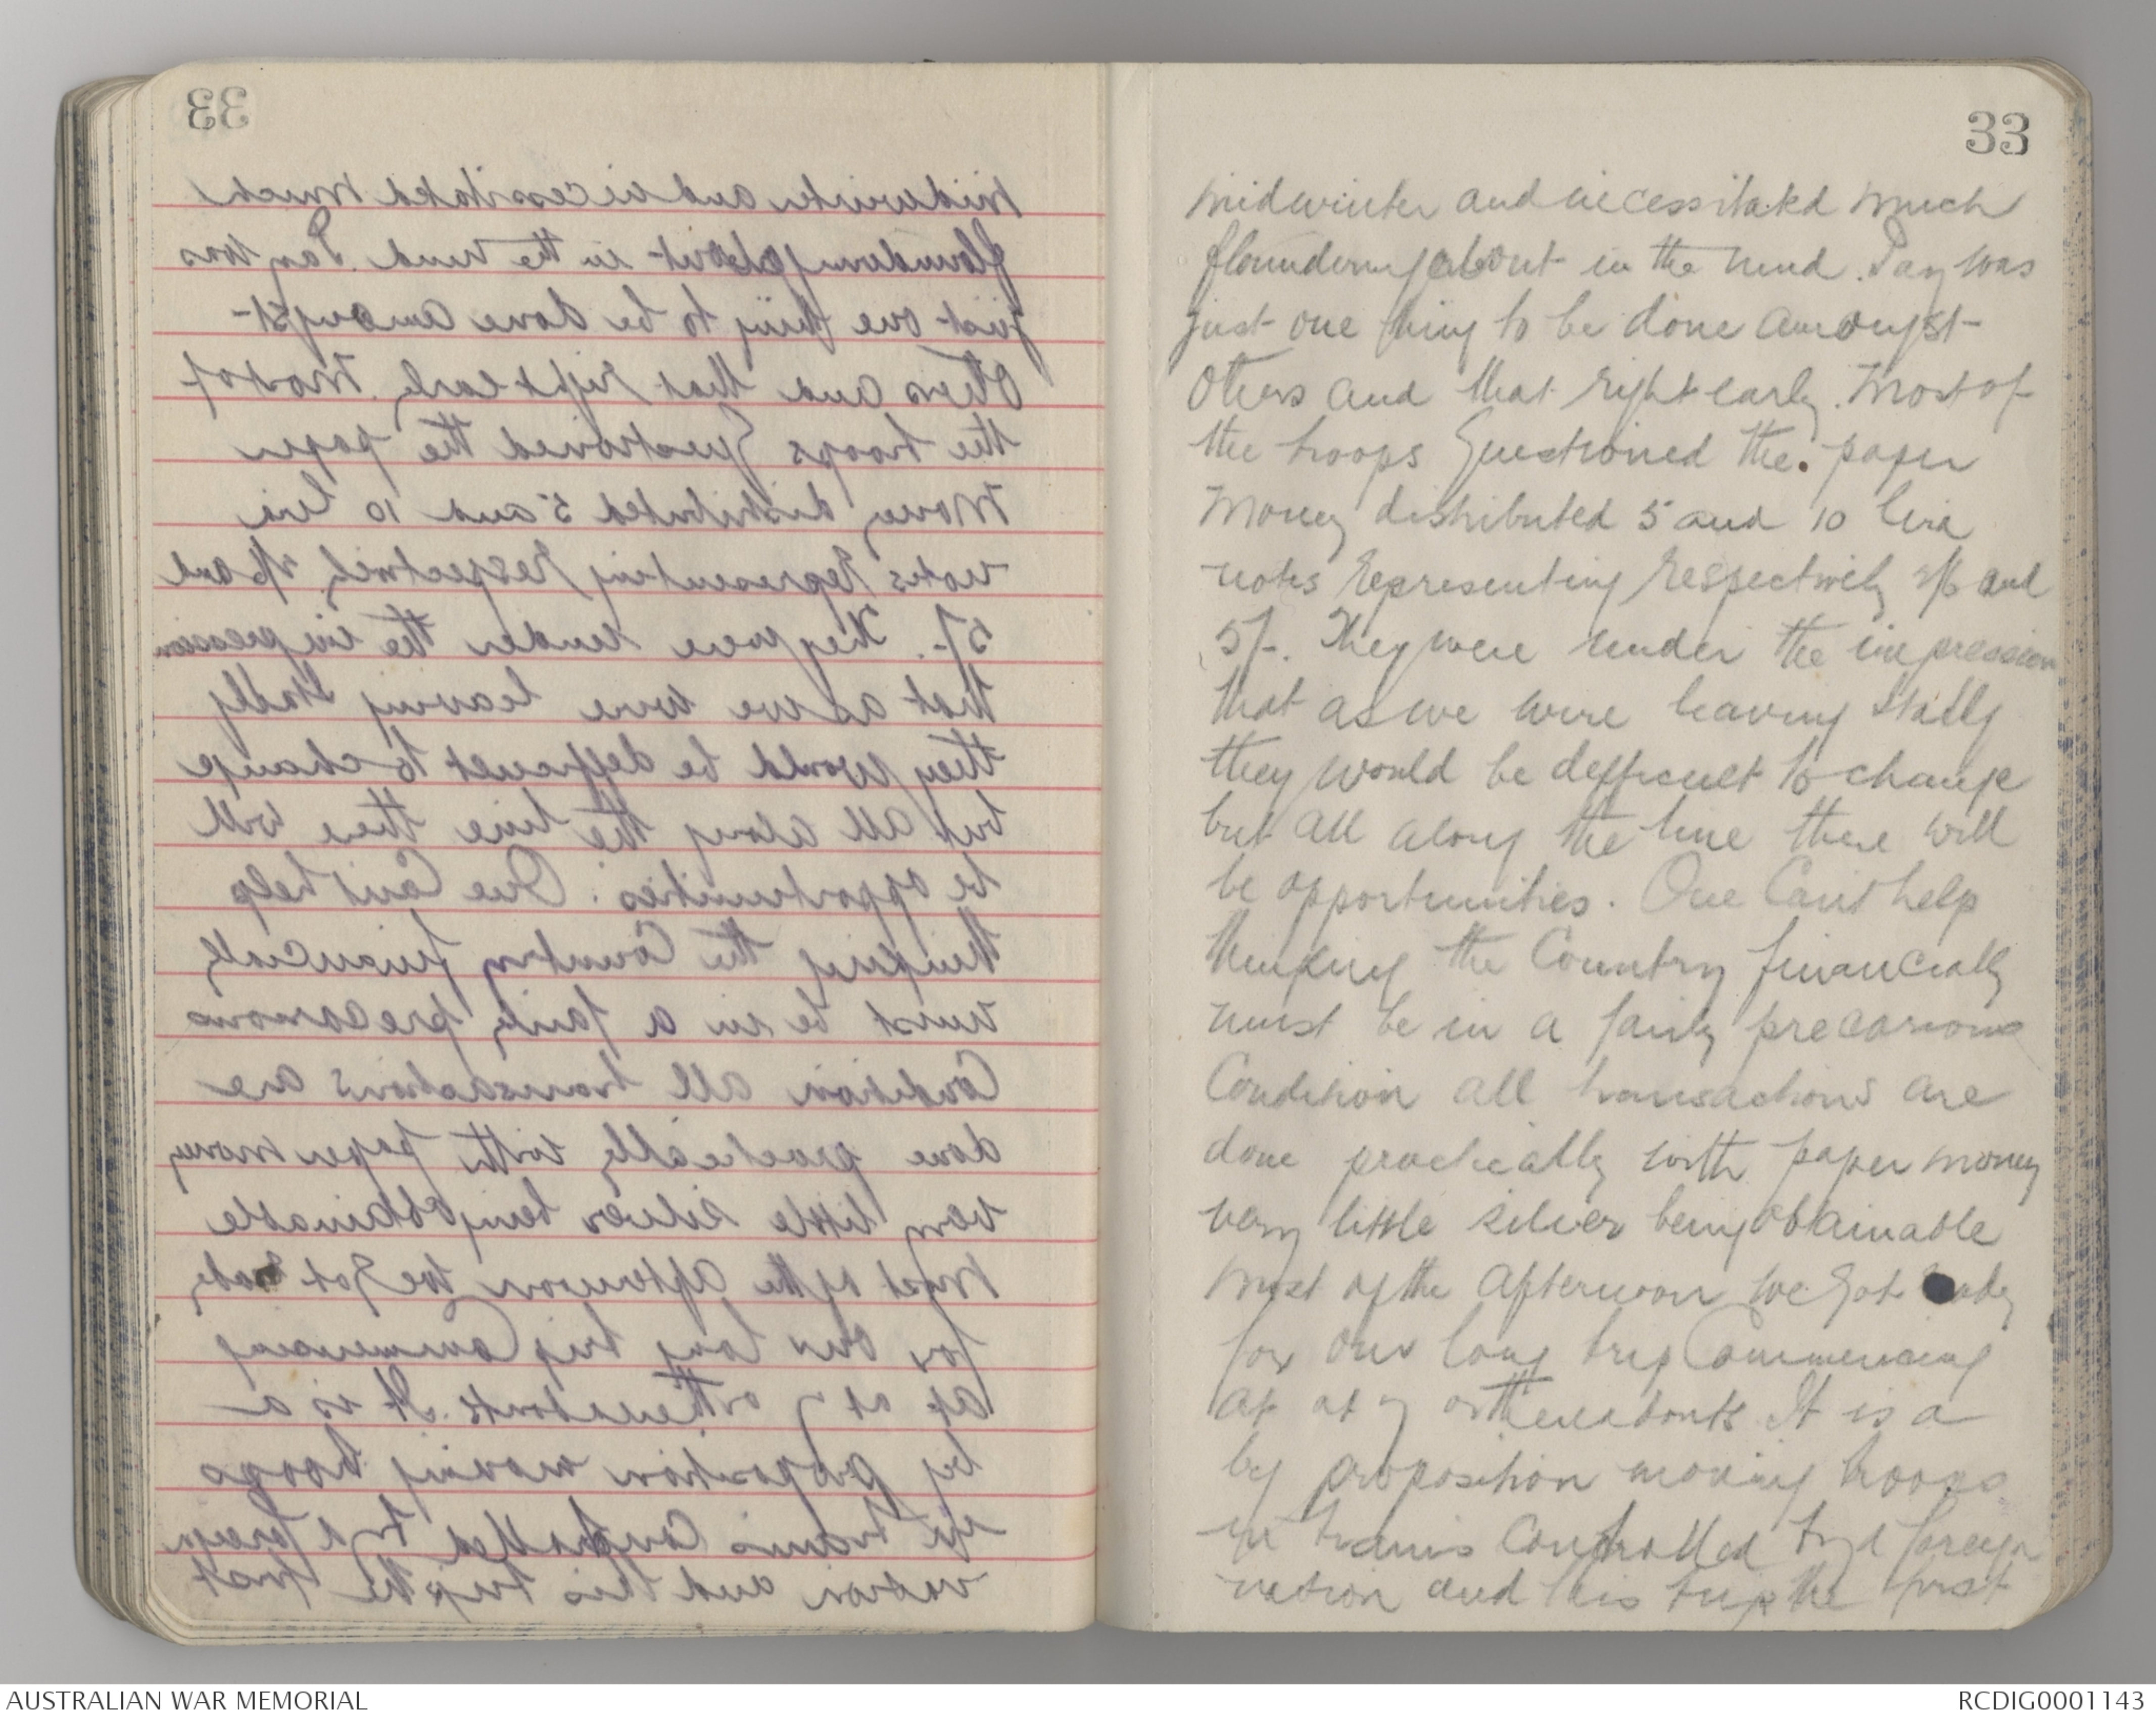 33
midwinter and necessitated much
floundering about in the mud. Pay was
just one thing to be done amongst
others and that right early. Most of
the troops Questioned the paper
money distributed 5 and 10 lira
notes representing respectively 2/6 and
5/-. They were under the impression
that as we were leaving Italy
they would be difficult to change
but all along the line there will
be opportunities. One Can't help
thinking the Country financially
must be in a fairly precarious
Condition all transactions are
done practically with paper money
very little silver being obtainable
most of the afternoon we got ready
for our long trip Commencing
at at 7 It is a
big proposition moving troops
in trains Controlled by a foreign
nation and this trip the first
AUSTRALIAN WAR MEMORIAL
RCDIG0001143